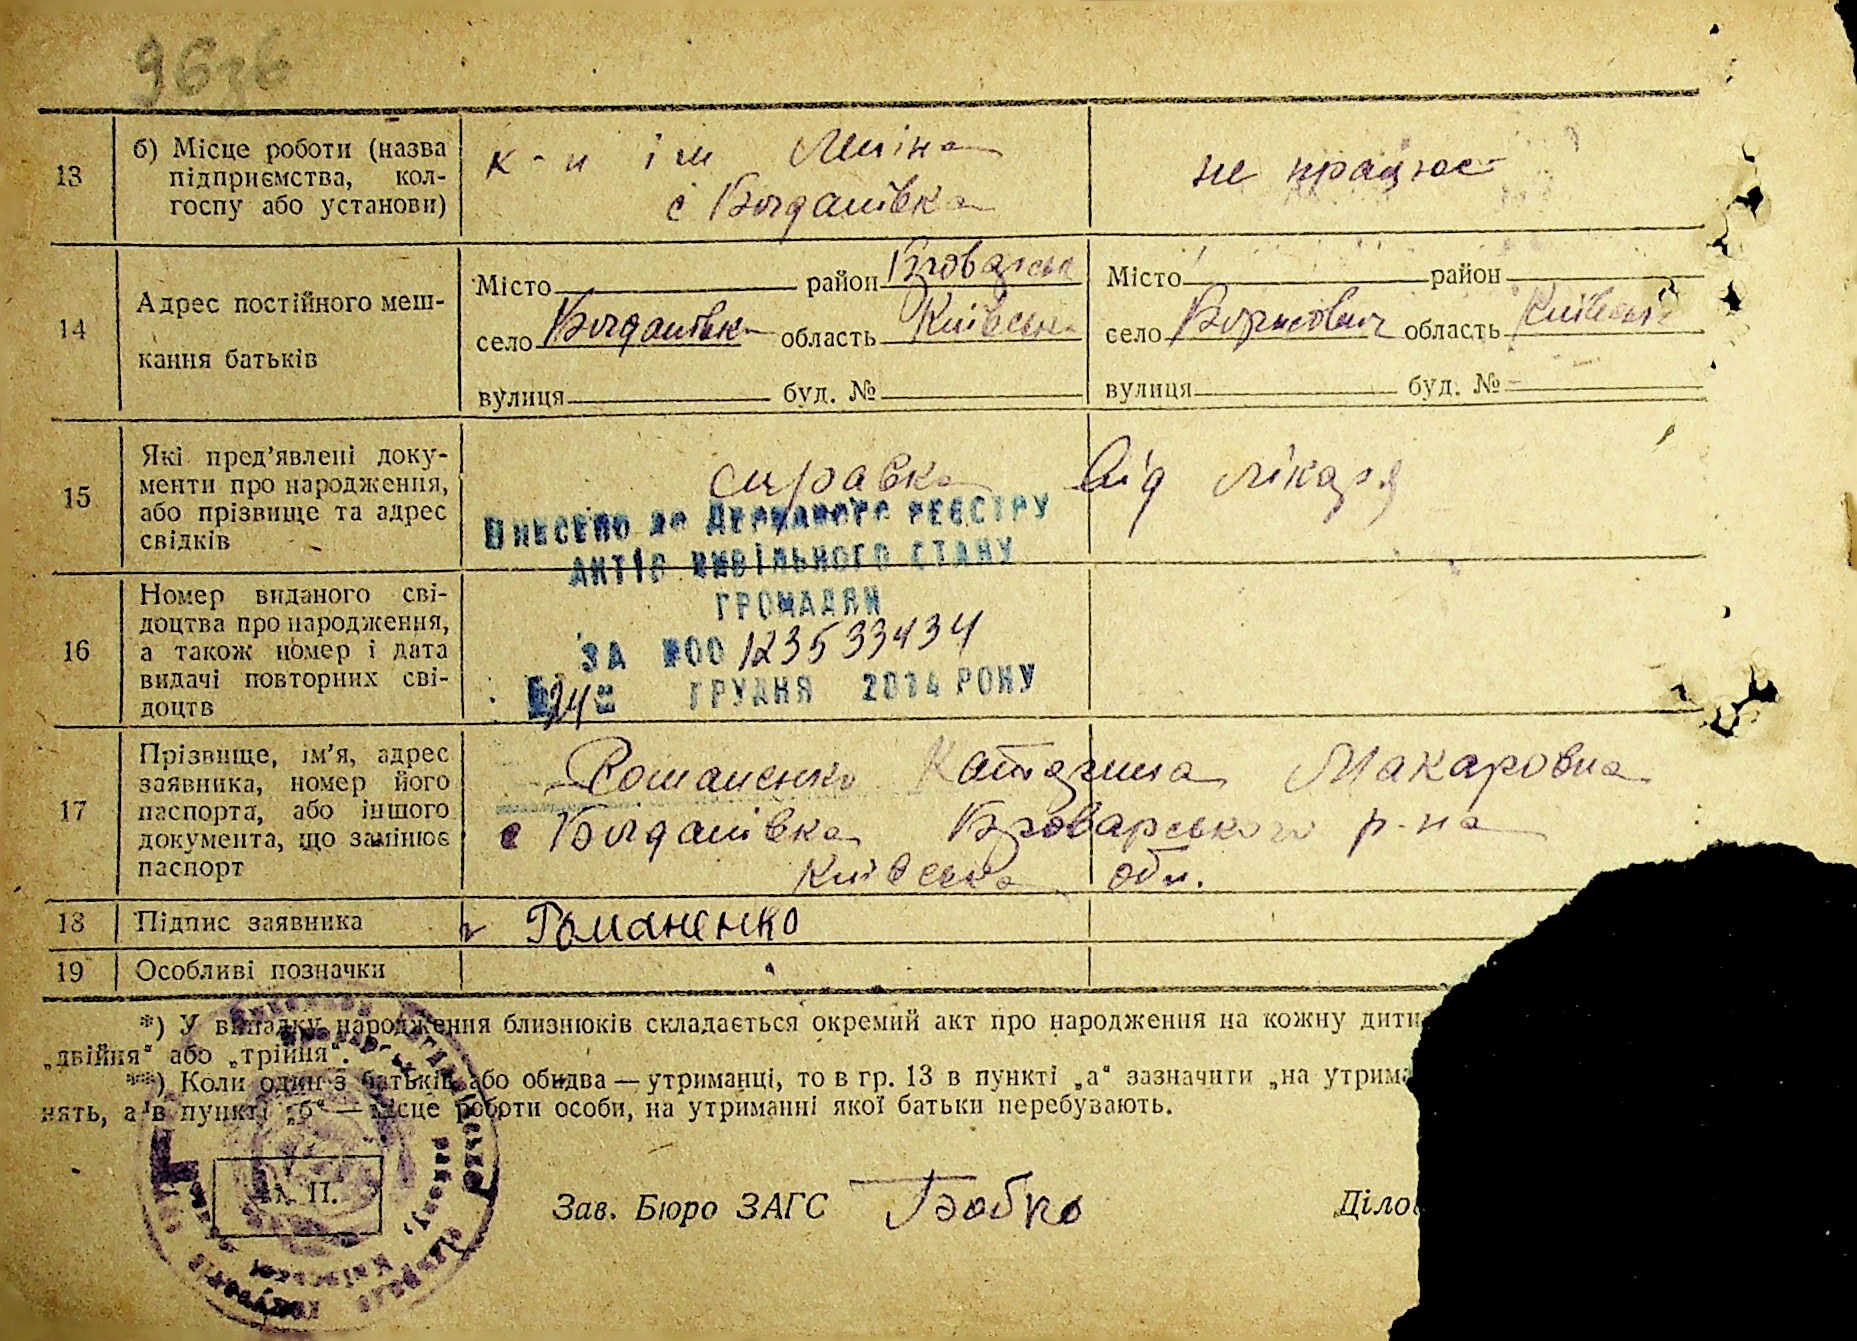 13
б) Місце роботи (назва
підприємства, кол-
госпу або установи)
к-п ім Леніна
с Богданівка
не працює
14
Адрес постійного меш-
кання батьків
Місто район Броварськ
село Богданівка область Київська
вулиця буд. №
Місто район
село область Київська
вулиця буд. №
15
Які пред’явлені доку-
менти про народження,
або прізвище та адрес
свідків
справка від лікаря
16
Номер виданого сві-
доцтва про народження,
а також номер і дата
видачі повторних сві-
доцтв
Внесено до Державного реєстру
актів цивільного стану
громадян
за №00123533434
24 грудня 2014 року
17
Прізвище, ім’я, адрес
заявника, номер його
паспорта, або іншого
документа, що замінює
паспорт
Романенко Катерина Макаровна
с Богданівка Броварського р-на
Київська обл.
18
Підпис заявника
Романенко
19
Особливі позначки
*) У випадку народження близнюків складається окремий акт про народження на кожну дити
„двійня“ або „трійня“.
**) Коли один з батьків або обидва — утриманці, то в гр. 13 в пункті „а“ зазначити „на утрима
нять, а в пункті „б“ — місце роботи особи, на утриманні якої батьки перебувають.
М. П.
Зав. Бюро ЗАГС Бобко
Діло